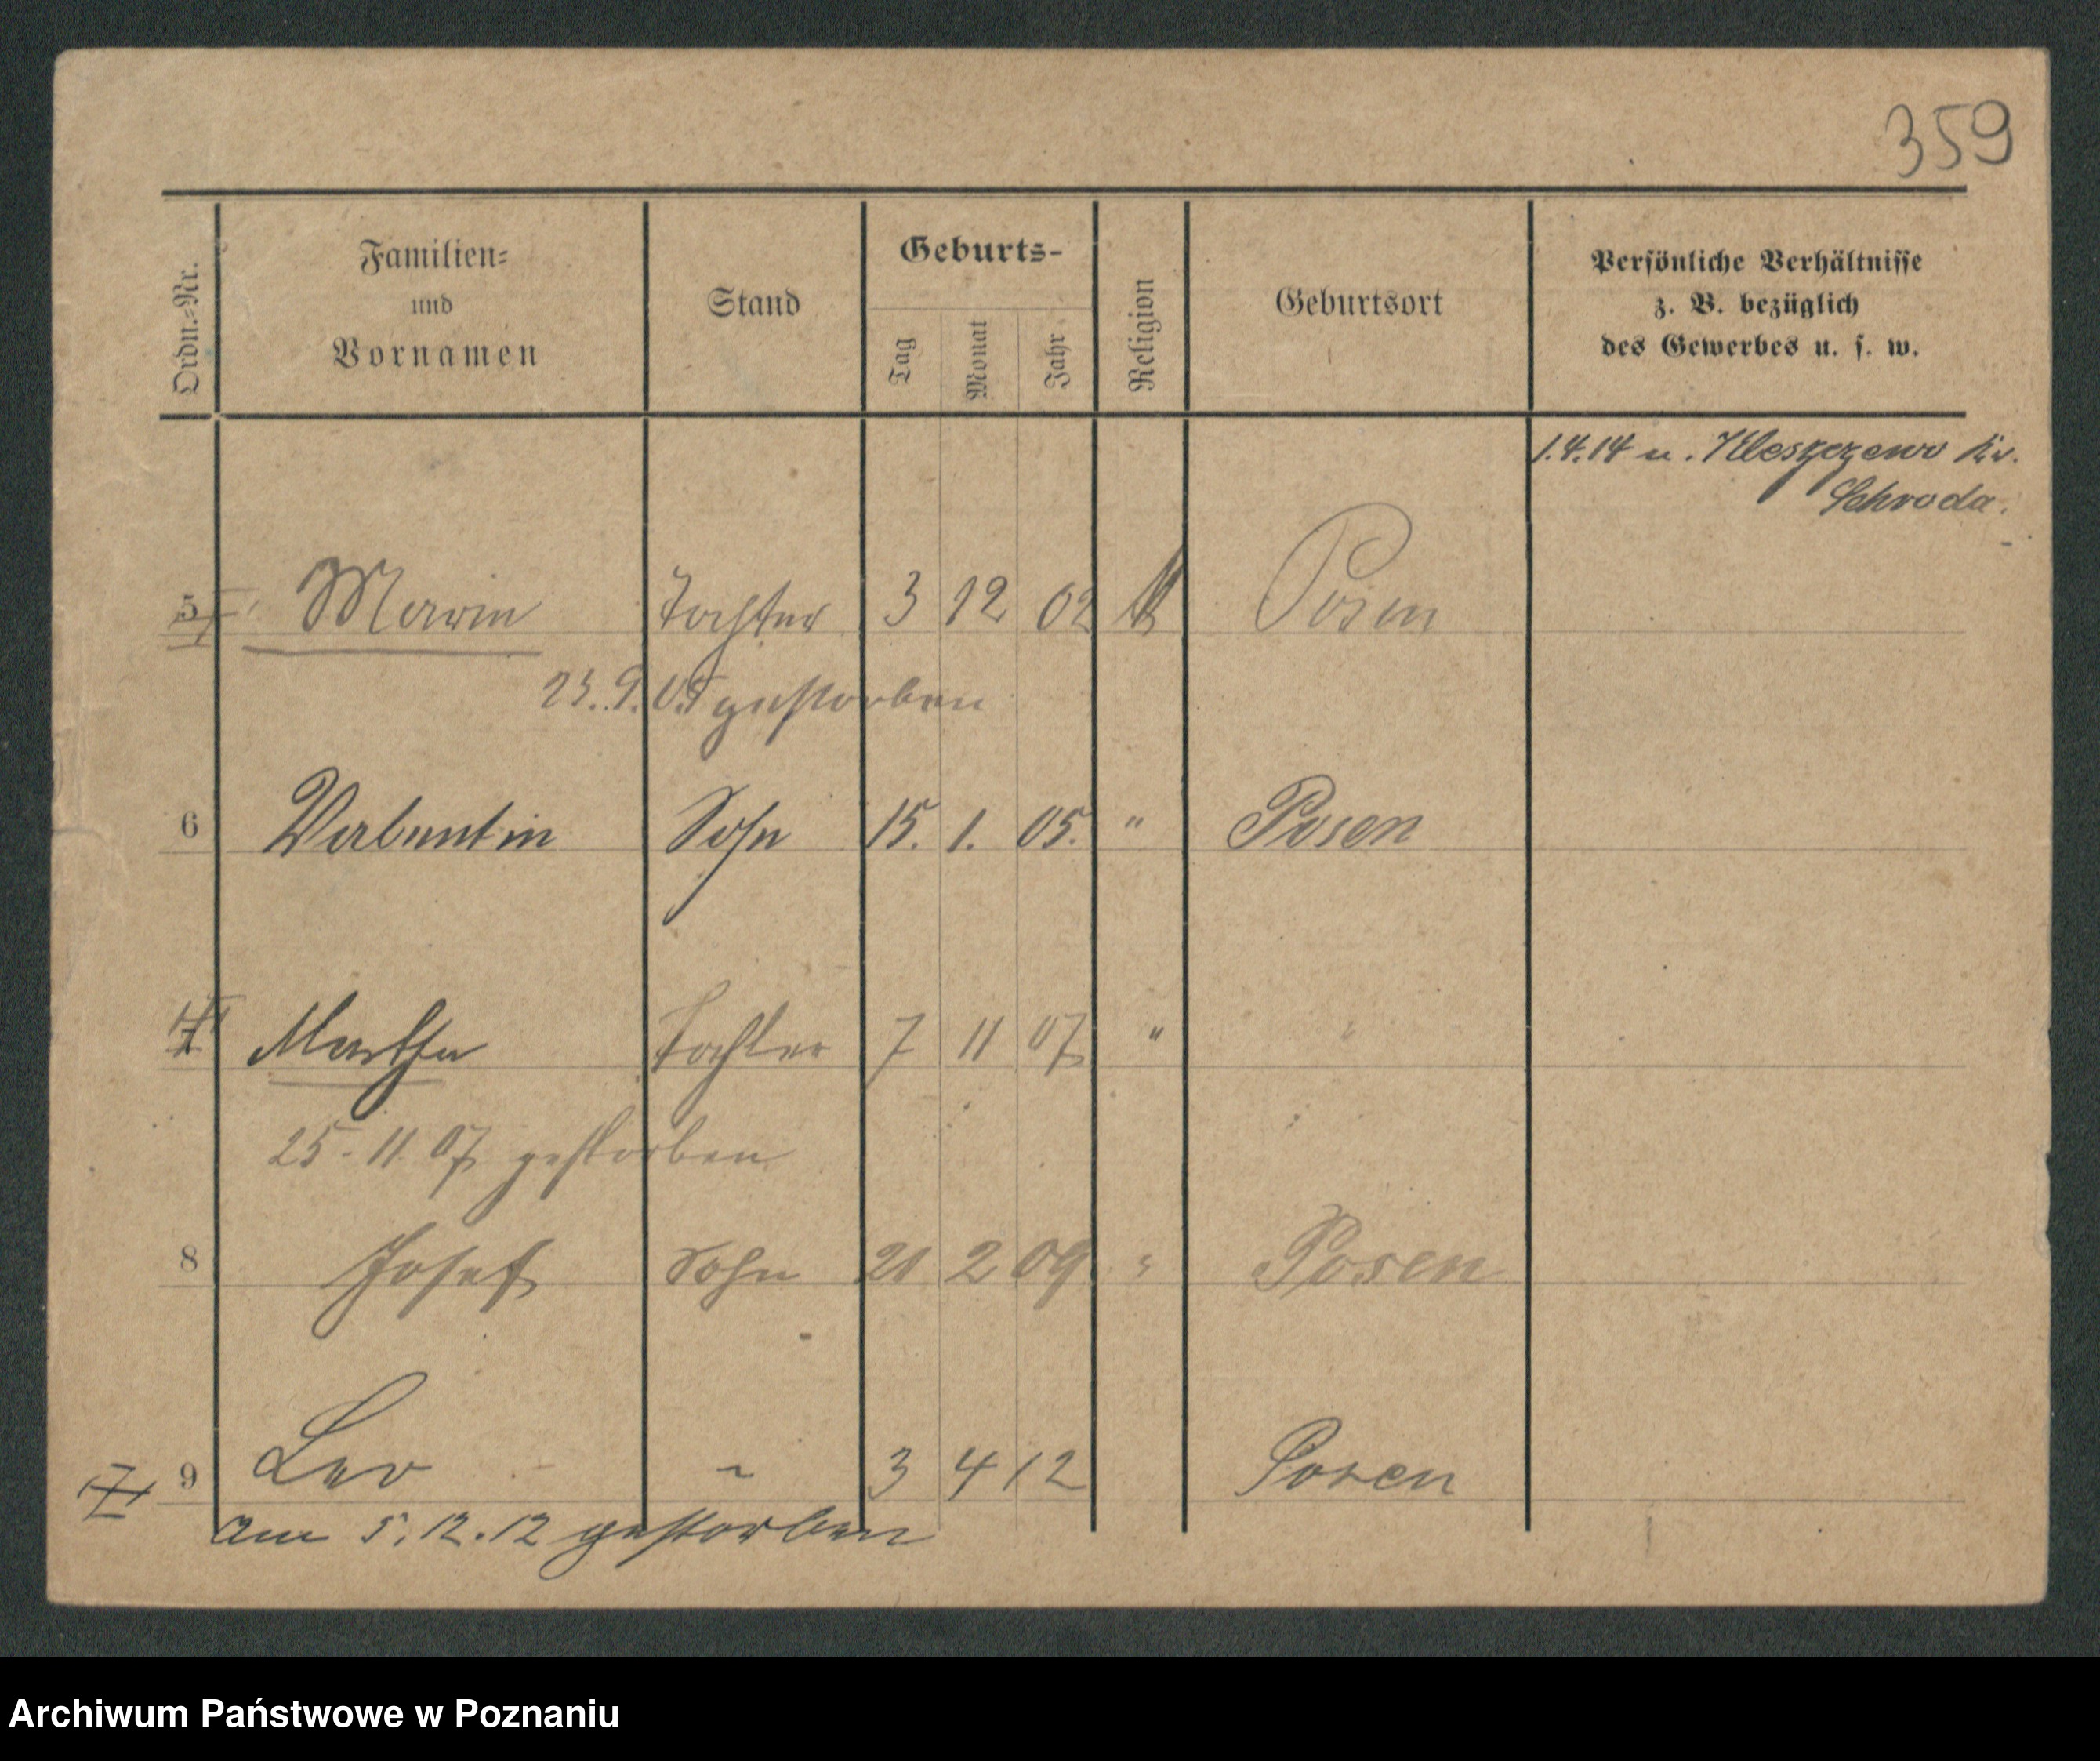 359
Ordn.-Nr.
Familien-
und
Vornamen
Stand
Geburts-
Tag
Monat
Jahr
Religion
Geburtsort
Persönliche Verhältnisse
z. B. bezüglich
des Gewerbes u. s. w.
1.4.14 n. Kleszczewo Kr.
Schroda.
5 Marie Tochter 3 12 02 Posen
23.9.05 gestorben
6 Sohn 15. 1. 05. " Posen
7 Martha Tochter 7 11 07 " "
25-11 07 gestorben
8 Josef Sohn 21 2 09 " Posen
9 Leo " 3 4 12 Posen
am 5.12.12 gestorben
Archiwum Państwowe w Poznaniu